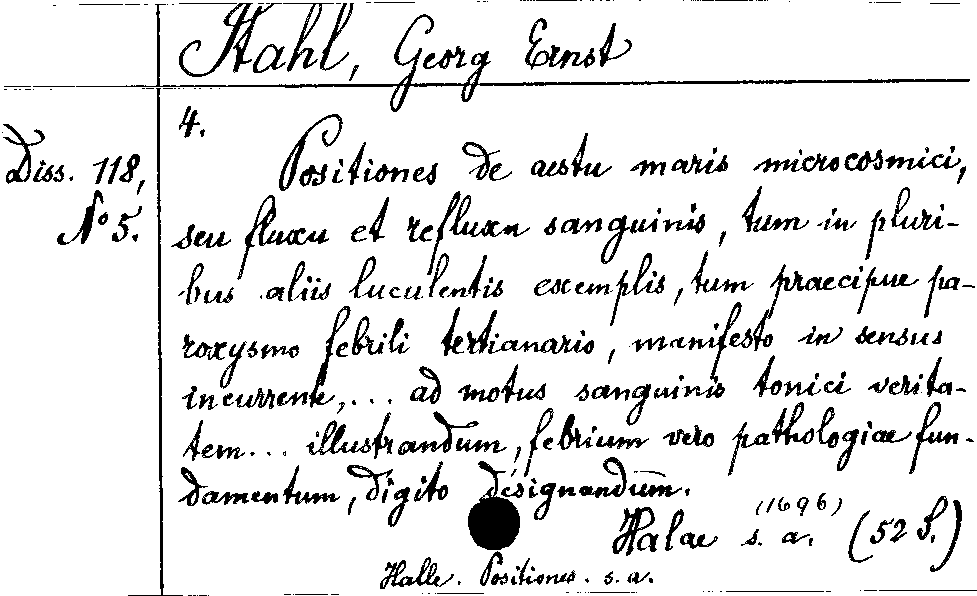 Stahl, Georg Ernst
4.
Diss. 118,
No 5.
Positiones de aestu maris microcosmici,
seu fluxu et refluxu sanguinis, tum in pluri-
bus aliis luculentis exemplis, tum praecipue pa-
roxysmo febrili tertianario, manifesto in sensus
incurrente,... ad motus sanguinis tonici verita-
tem... illustrandum, febrium vero pathologiae fun-
damentum, digito designandum.
(1696)
Halae s. a. (52 S.)
Halle. Positiones. s. a.